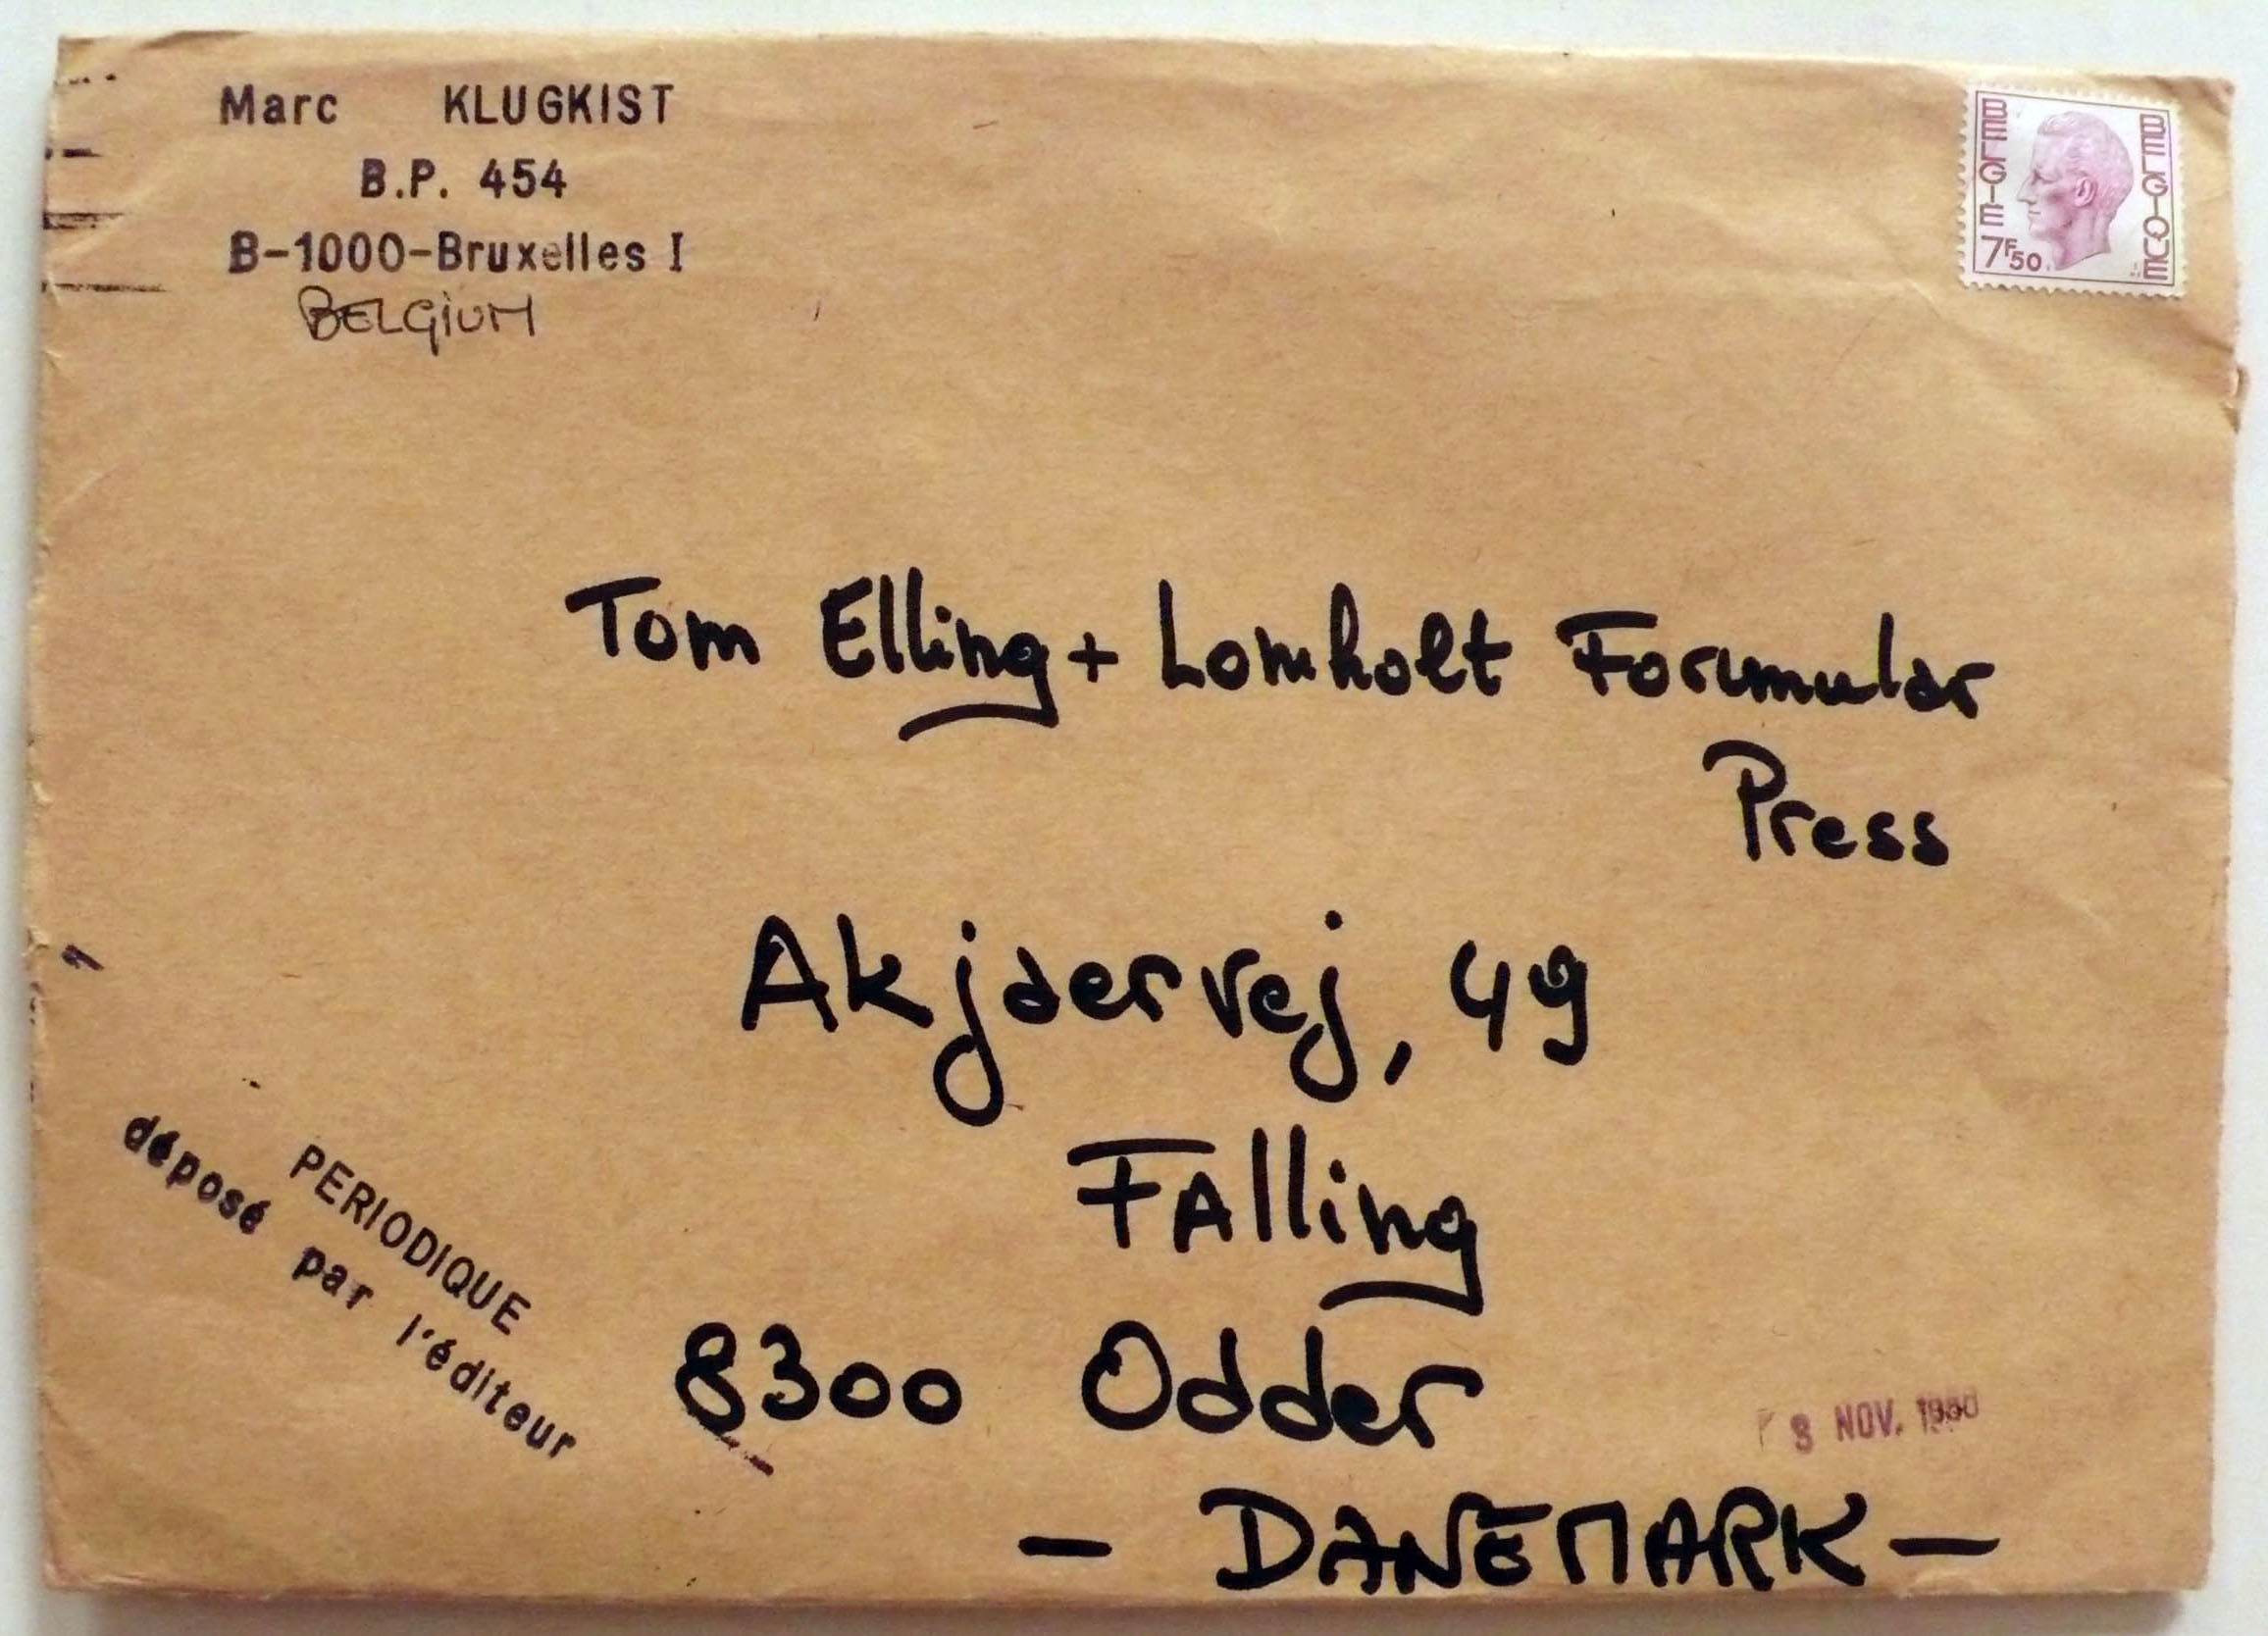 Marc KLUGKIST
B.P. 454
B-1000-Bruxelles I
BELGIUM
BELGIE
BELGIQUE
7F50
Tom Elling + Lomholt Formular
Press
Akjaervej, 49
FAlling
8300 Odder
- DANEMARK -
PERIODIQUE
déposé par l'éditeur
8 NOV. 1980